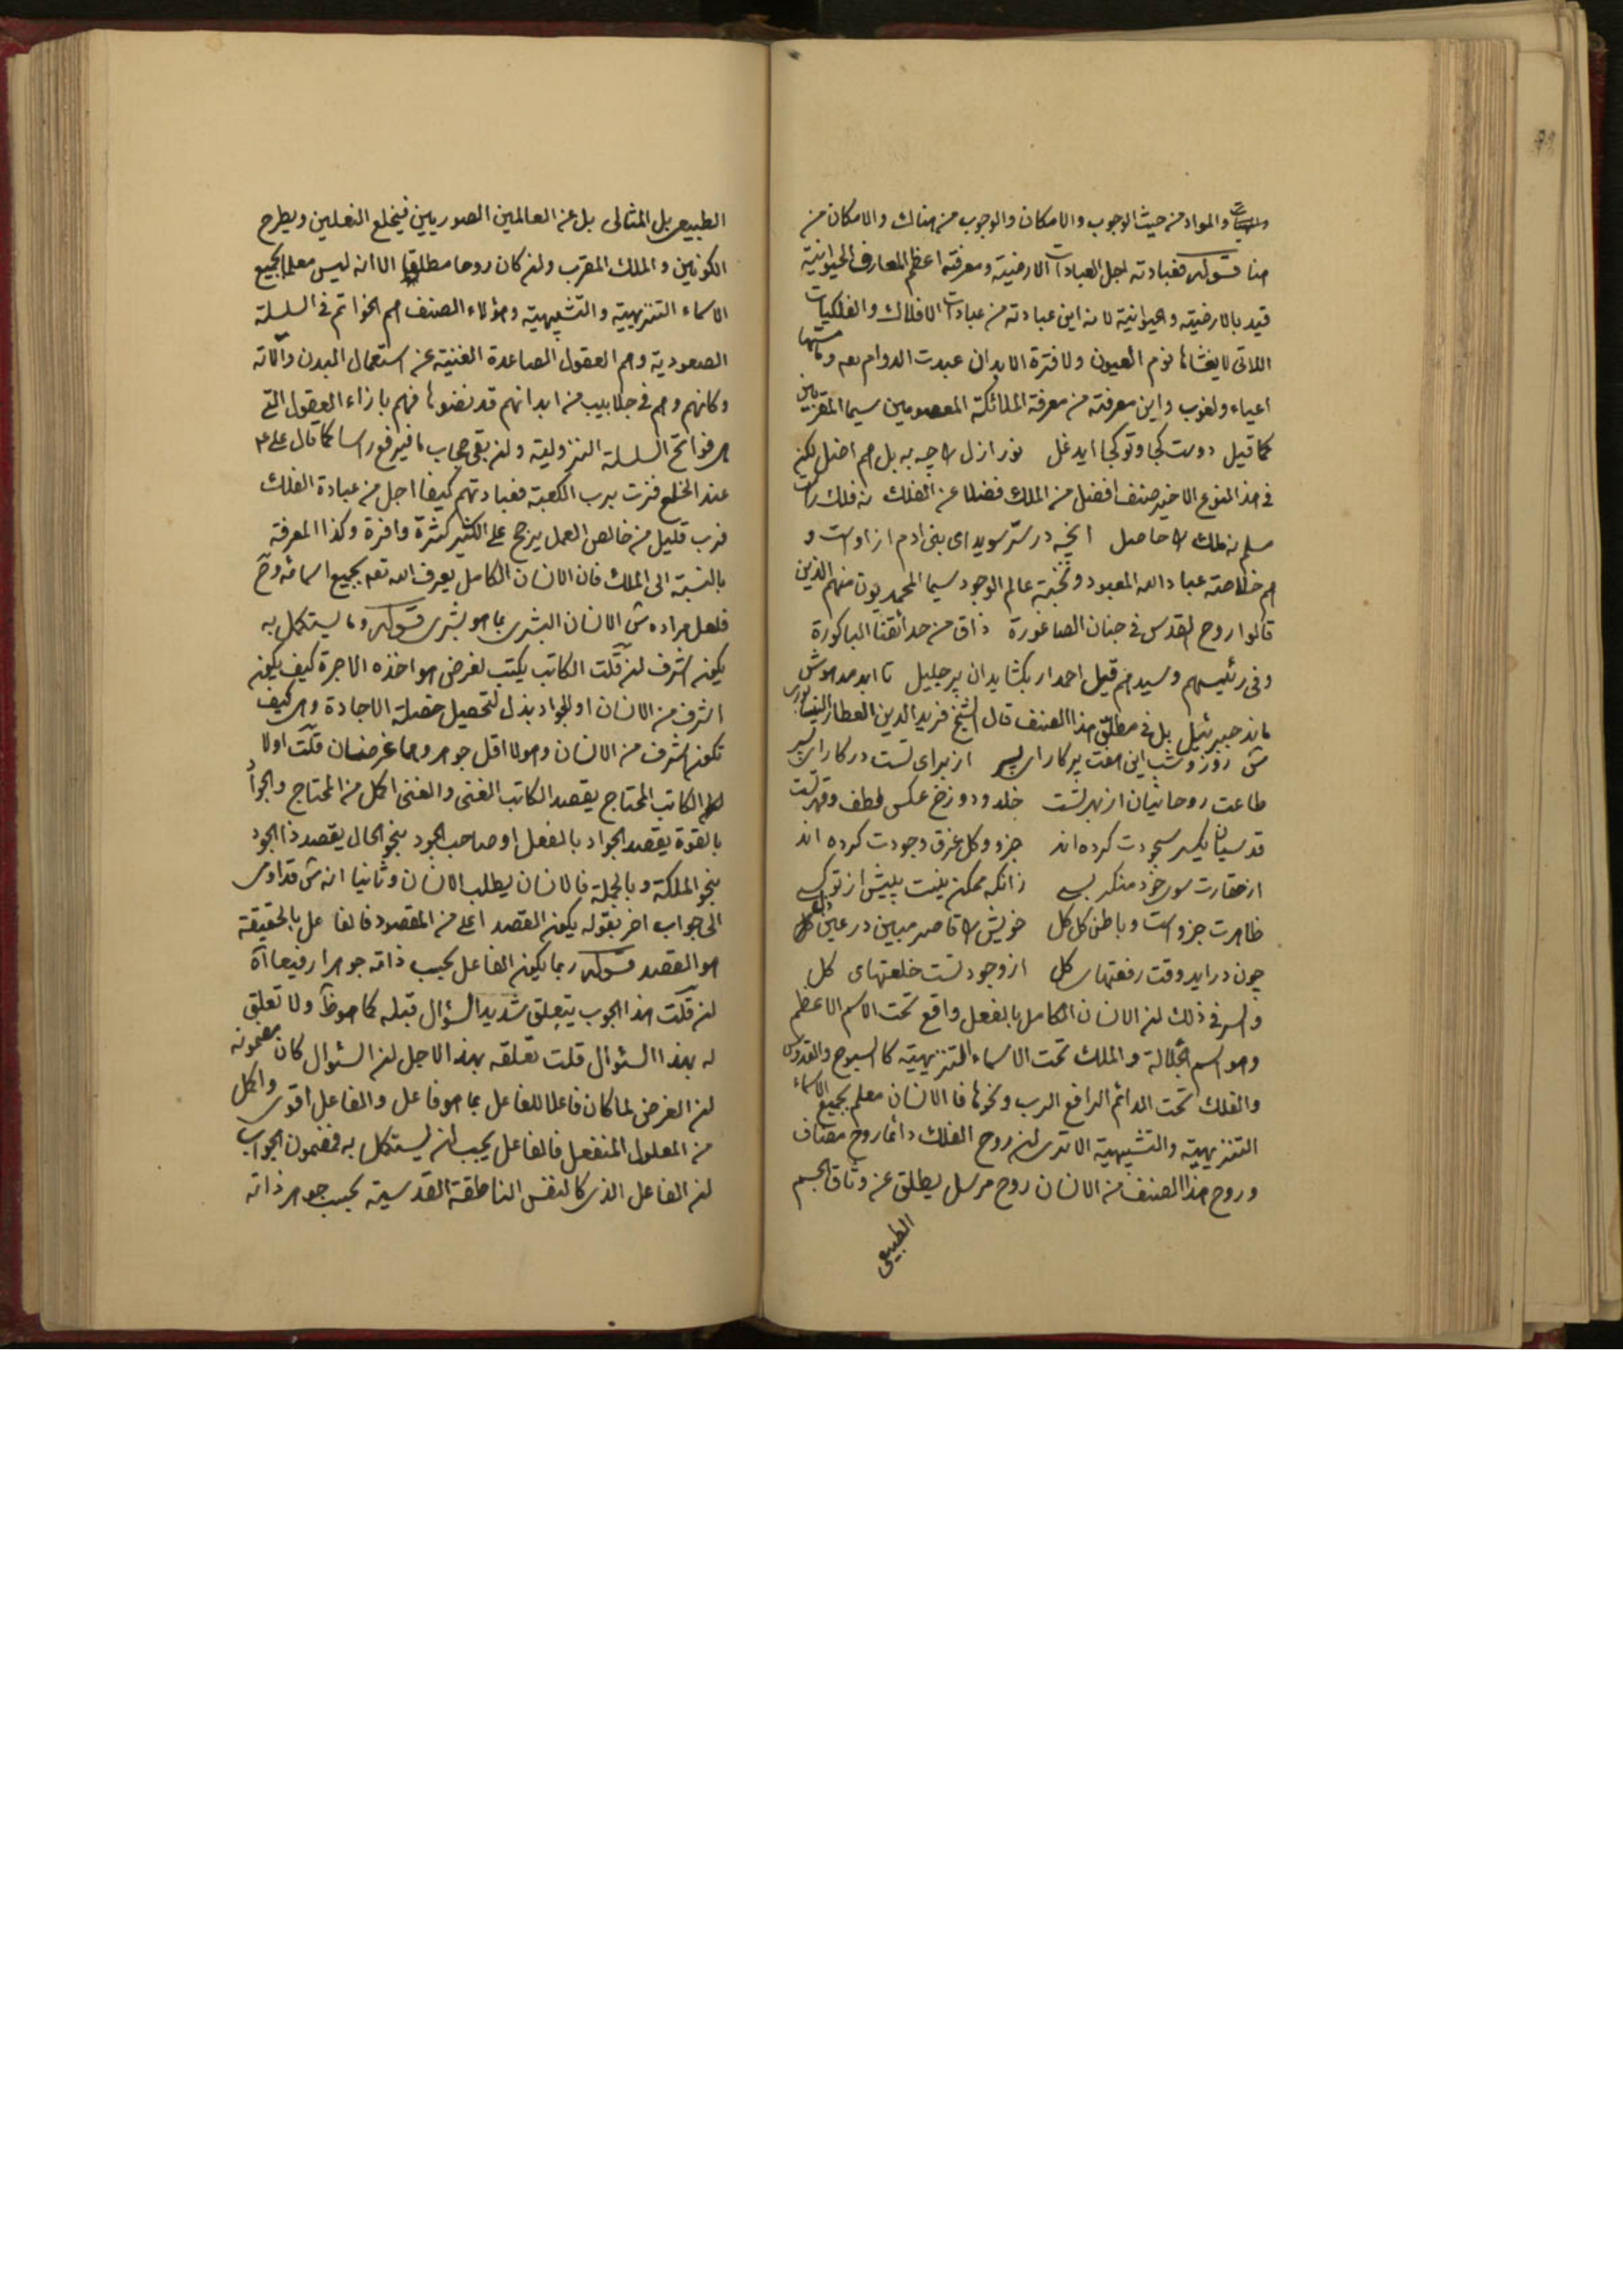 والمواد من حيث الوجوب والامكان والوجوب من هناك والامكان من
هنا قوله فعبادته اجل العبادات الارضية ومعرفته اعظم المعارف الحيوانية
قيد بالارضية والحيوانية لانه اين عبادته من عبادات الافلاك والفلكيات
اللاتى لا يغشاها نوم العيون ولا فترة الابدان عبدت الدوام بعه وما مستها
اعياء ولغوب واين معرفته من معرفة الملائكة المعصومين سيما المقربين
كما قيل دوست كجا وتو كجا ايدغل نور ازل را چه به بل هم اضل لكن
فى هذا النوع الاخير صنف افضل من الملك فضلا عن الفلك نه فلك راست
مسلم نه ملك را حاصل انچه در سر سويداى بنى ادم ازاوست و
هم خلاصة عباد الله المعبود ونخبة عالم الوجود سيما المحمديون منهم الذين
قالوا روح القدس فى جنان الصاغورة ذاق من حدائقنا الباكورة
وفى رئيسهم وسيدهم قيل احمد ار بكشايد ان پر جليل تا ابد مدهوش
ماند جبرئيل بل فى مطلق هذا الصنف قال الشيخ فريد الدين العطار النيسابورى
ش روز وشب اين هفت پركار اى پسر از براى تست در كار اى پسر
طاعت روحانيان از بهر تست خلد ودوزخ عكس لطف وقهر تست
قدسيان يكسر سجودت كرده اند جزو وكل غرق وجودت كرده اند
از حقارت سوى خود منكر بسى زانكه ممكن نيست پيش از تو كسى
ظاهرت جزو است وباطن كل كل خويش را قاصر مبين در عين ذل
چون درايد وقت رفعتهاى كل از وجود تست خلعتهاى كل
والسر فى ذلك ان الانسان الكامل بالفعل واقع تحت الاسم الاعظم
وهو اسم الجلالة والملك تحت الاسماء التنزيهية كالسبوح والقدوس
والفلك تحت الدائم الرافع الرب ونحوها فالانسان معلم بجميع الاسماء
التنزيهية والتشبيهية الا ترى ان روح الفلك دائما روح مضاف
وروح هذا الصنف من الانسان روح مرسل يطلق عن وثاق الجسم
الطبيعى
الطبيعى بل المثالى بل عن العالمين الصوريين فيخلع النعلين ويطرح
الكونين والملك المقرب وان كان روحا مطلقا الا انه ليس معلما بجميع
الاسماء التنزيهية والتشبيهية وهؤلاء الصنف هم الخواتم فى السلسلة
الصعودية وهم العقول الصاعدة الغنية عن استعمال البدن والاته
وكانهم وهم فى جلابيب من ابدانهم قد نضوها فهم بازاء العقول التى
هى فواتح السلسلة النزولية وان بقى حجاب ما فيرفع راسا كما قال على ع
عند الخلع فزت برب الكعبة فعبادتهم كيفا اجل من عبادة الفلك
فرب قليل من خالص العمل يرجح على الكثير كثرة وافرة وكذا المعرفة
بالنسبة الى الملك فان الانسان الكامل يعرف الله تعه بجميع اسمائه وح
فلعل مراده ش الانسان البشرى بما هو بشرى قوله وما يستكمل به
يكون اشرف ان قلت الكاتب يكتب لغرض هو اخذه الاجرة كيف يكون
اشرف من الانسان او الجواد بذل لتحصيل خصلة الاجادة وهى كيف
تكون اشرف من الانسان وهو لا اقل جوهر وهما عرضان قلت اولا
الكاتب المحتاج يقصد الكاتب الغنى والغنى اكمل من المحتاج والجواد
بالقوة يقصد الجواد بالفعل او صاحب الجود بنحو الحال يقصد ذا الجود
بنحو الملكة وبالجملة فالانسان يطلب الانسان وثانيا انه ش قد اومى
الى جواب اخر بقوله يكون القصد اعلى من المقصود فالفاعل بالحقيقة
هو القصد قوله ربما يكون الفاعل بحسب ذاته جوهرا رفيعا اه
ان قلت هذا الجوب يتعلق شديد السؤال قبله كما هو ظ ولا تعلق
له بهذا السئوال قلت تعلقه بهذا لاجل ان السئوال كان مضمونه
ان الغرض لما كان فاعلا للفاعل بما هو فاعل والفاعل اقوى واكمل
من المعلول المنفعل فالفاعل يجب ان يستكمل به فمضمون الجواب
ان الفاعل الذى كالنفس الناطقة القدسية بحسب جوهر ذاته